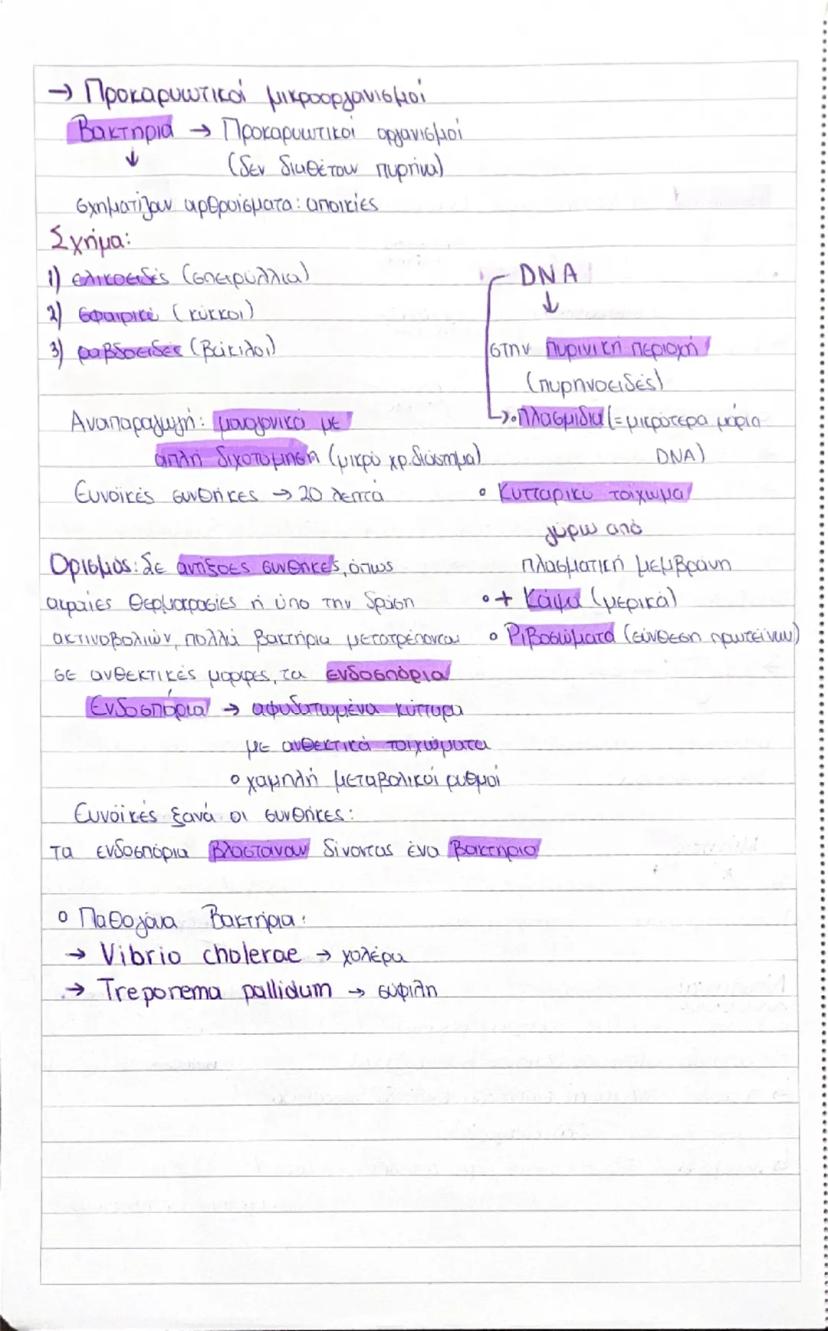 → Προκαρυωτικοί μικροοργανισμοί
Βακτήρια → Προκαρυωτικοί οργανισμοί
↓ (δεν διαθέτουν πυρήνα)
σχηματίζουν αρθροίσματα: αποικίες
Σχήμα:
1) ελικοειδές (σπειρύλλια)
2) σφαιρικό (κόκκοι)
3) ραβδοειδές (βάκιλοι)
Αναπαραγωγή: μονογονικά με
απλή διχοτόμηση (μικρό χρ. διάστημα)
Ευνοϊκές συνθήκες → 20 λεπτά
DNA
↓
στην πυρινική περιοχή
(πυρηνοειδές)
→ • Πλασμίδια (= μικρότερα μόρια
DNA)
ο Κυτταρικό τοίχωμα
γύρω από
πλασματική μεμβράνη
ο + Κάψα (μερικά)
ο Ριβοσώματα (σύνθεση πρωτεϊνών)
Ορισμός: Σε αντίξοες συνθήκες, όπως
ακραίες θερμοκρασίες ή υπό την δράση
ακτινοβολιών, πολλά βακτήρια μετατρέπονται
σε ανθεκτικές μορφές, τα ενδοσπόρια
Ενδοσπόρια → αφυδατωμένα κύτταρα
με ανθεκτικά τοιχώματα
ο χαμηλή μεταβολικοί ρυθμοί
Ευνοϊκές ξανά οι συνθήκες:
τα ενδοσπόρια βλαστάνουν δίνοντας ένα βακτήριο
ο Παθογόνα Βακτήρια:
→ Vibrio cholerae → χολέρα
→ Treponema pallidum → σύφιλη